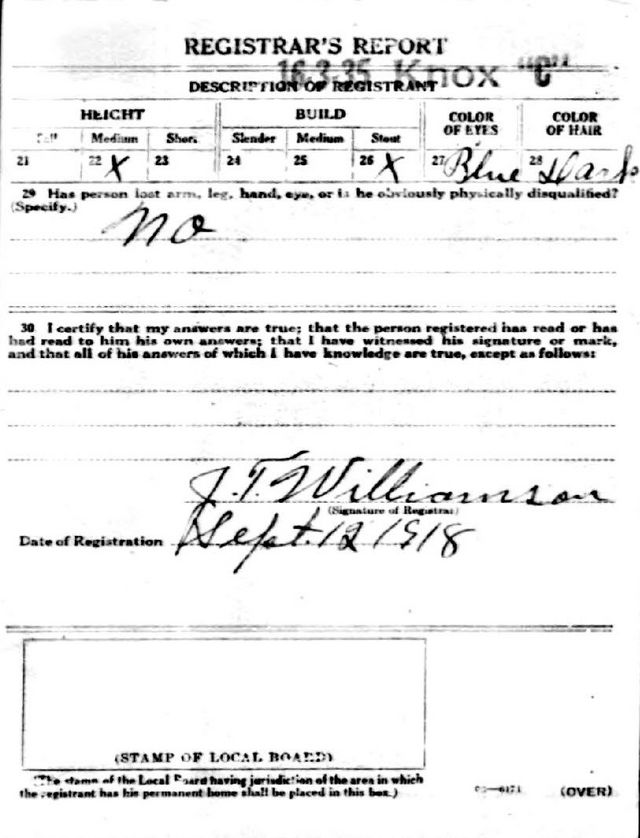 REGISTRAR'S REPORT
16-3-35 Knox "C"
DESCRIPTION OF REGISTRANT
HEIGHT BUILD COLOR OF EYES COLOR OF HAIR
Tall Medium Short Slender Medium Stout
21 22 X 23 24 25 26 X 27 Blue 28 Dark
29 Has person lost arm, leg, hand, eye, or is he obviously physically disqualified?
(Specify.)
No
30 I certify that my answers are true; that the person registered has read or has
had read to him his own answers; that I have witnessed his signature or mark,
and that all of his answers of which I have knowledge are true, except as follows:
J. T. Williamson
(Signature of Registrar)
Date of Registration Sept. 12 1918
(STAMP OF LOCAL BOARD)
(The stamp of the Local Board having jurisdiction of the area in which
the registrant has his permanent home shall be placed in this box.)
(OVER)